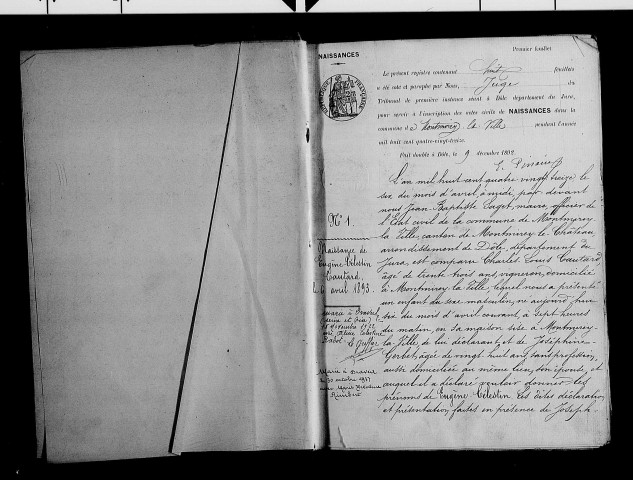 NAISSANCES
Premier feuillet
Le présent registre contenant huit feuillets
a été coté et paraphé par Nous, Juge du
Tribunal de première instance séant à Dôle département du Jura,
pour servir à l'inscription des actes civils de NAISSANCES dans la
commune de Montmirey-la-Ville pendant l'année
mil huit cent quatre-vingt-treize.
Fait double à Dôle, le 9 décembre 1892
L'an mil huit cent quatre vingt treize le
six du mois d'avril, à midi, par devant
nous Jean Baptiste Paget, maire, officier de
l'Etat civil de la commune de Montmirey-
la Ville, canton de Montmirey-le-Château,
arrondissement de Dole, département du
Jura, est comparu Charles Louis Coutard
âgé de trente trois ans, vigneron, domicilié
à Montmirey la Ville, lequel nous a présenté
un enfant du sexe masculin, né aujourd'hui
six du mois d'avril courant, à sept heures
du matin, en sa maison sise à Montmirey-
la Ville, de lui déclarant, et de Joséphine
Gerbet, âgée de vingt huit ans, sans profession,
aussi domiciliée au même lieu, son épouse, et
auquel il a déclaré vouloir donner les
prénoms de Eugène Célestin. Les dites déclaration
et présentation faites en présence de Joseph
N° 1.
Naissance de
Eugène Célestin
Coutard,
le 6 avril 1893.
Marié à Draveil
le 30 octobre 1937